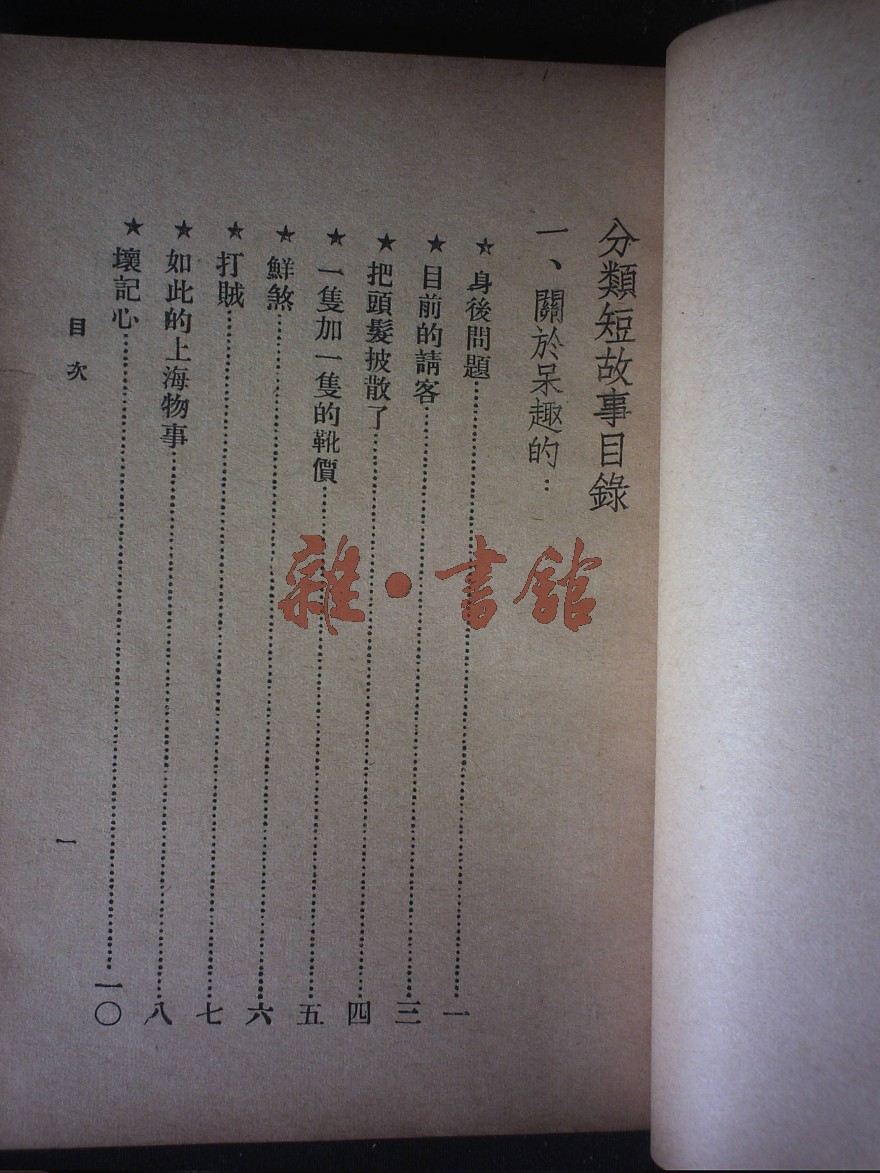 分類短故事目錄
一、關於呆趣的…
★身後問題……一
★目前的請客……三
★把頭髮披散了……四
★一隻加一隻的靴價……五
★鮮煞……六
★打賊……七
★如此的上海物事……八
★壞記心……一〇
目次
一
雜·書館